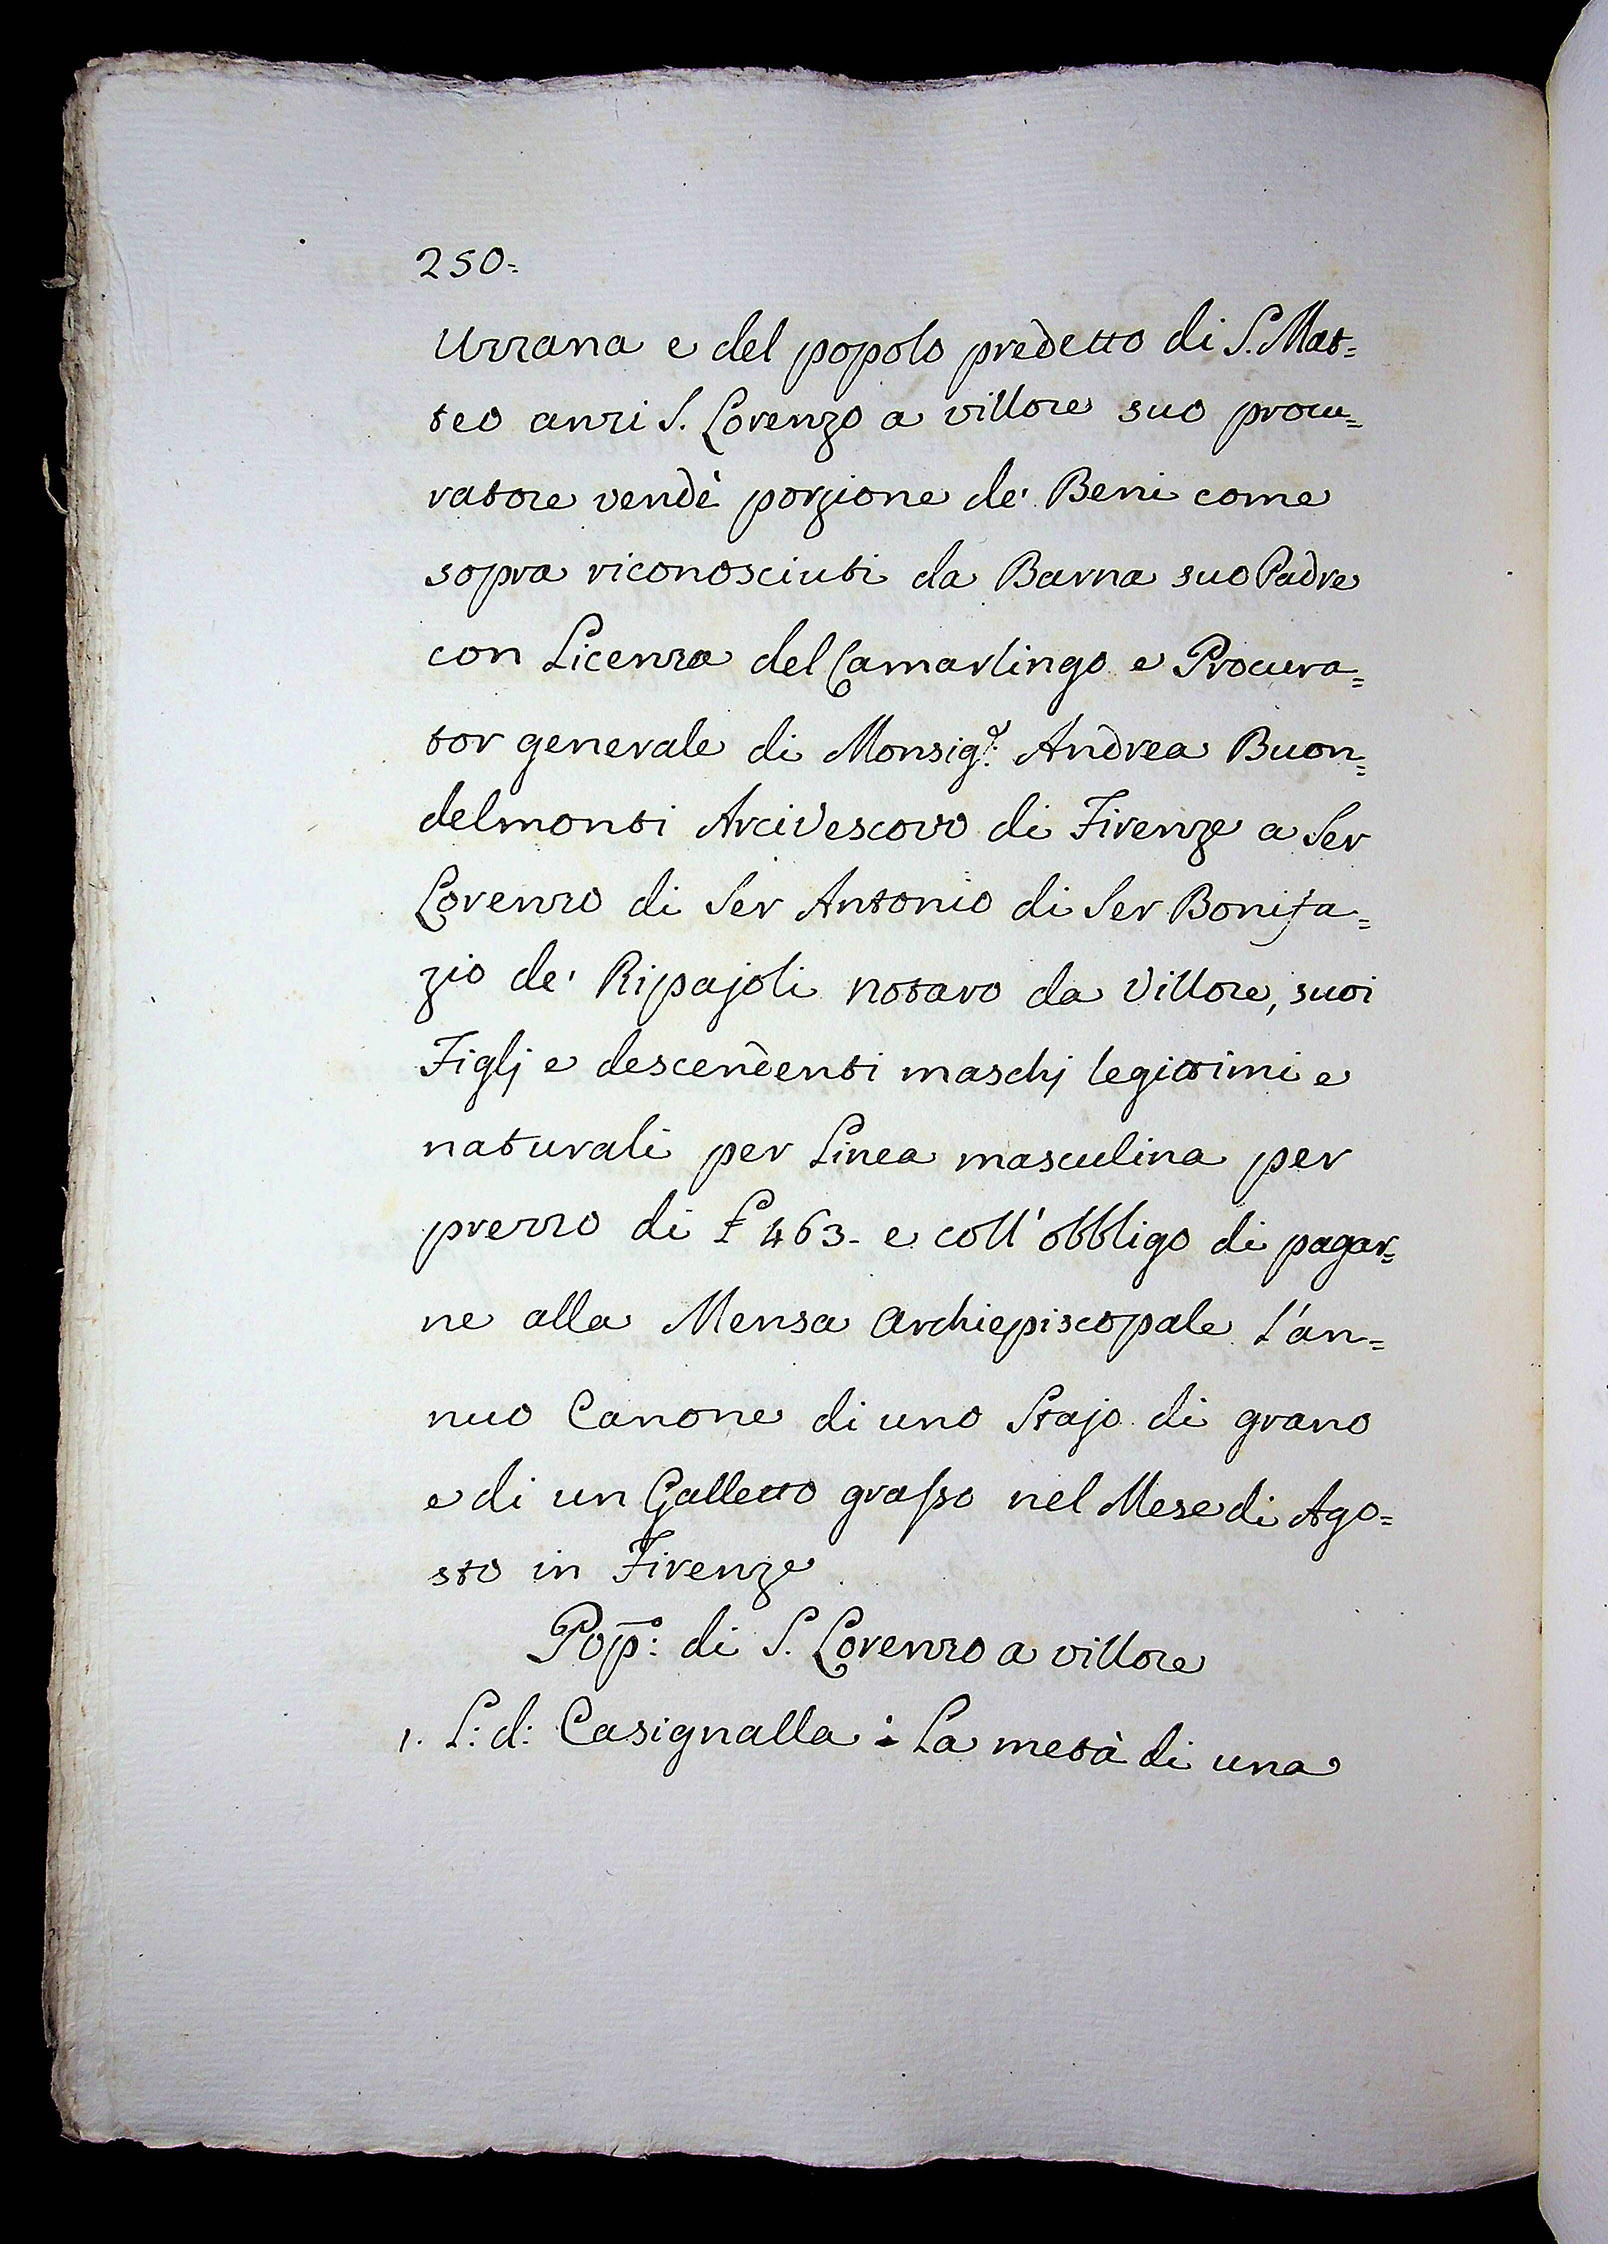 250=
Uzzana e del popolo predetto di S. Mat=
teo anzi S. Lorenzo a villore suo procu=
ratore vendè porzione de' Beni come
sopra riconosciuti da Barna suo Padre
con Licenza del Camarlingo e Procura=
tor generale di Monsig.r Andrea Buon=
delmonti Arcivescovo di Firenze a Ser
Lorenzo di Ser Antonio di Ser Bonifa=
zio de' Ripajoli Notaro da Villore, suoi
Figlj e descendenti maschj legittimi e
naturali per Linea masculina per
prezzo di £ 463- e coll' obbligo di pagar=
ne alla Mensa Archiepiscopale l'an=
nuo Canone di uno Stajo di grano
e di un Galletto grasso nel Mese di Ago=
sto in Firenze
Pop: di S. Lorenzo a villore
1. L: d: Casignalla : La metà di una